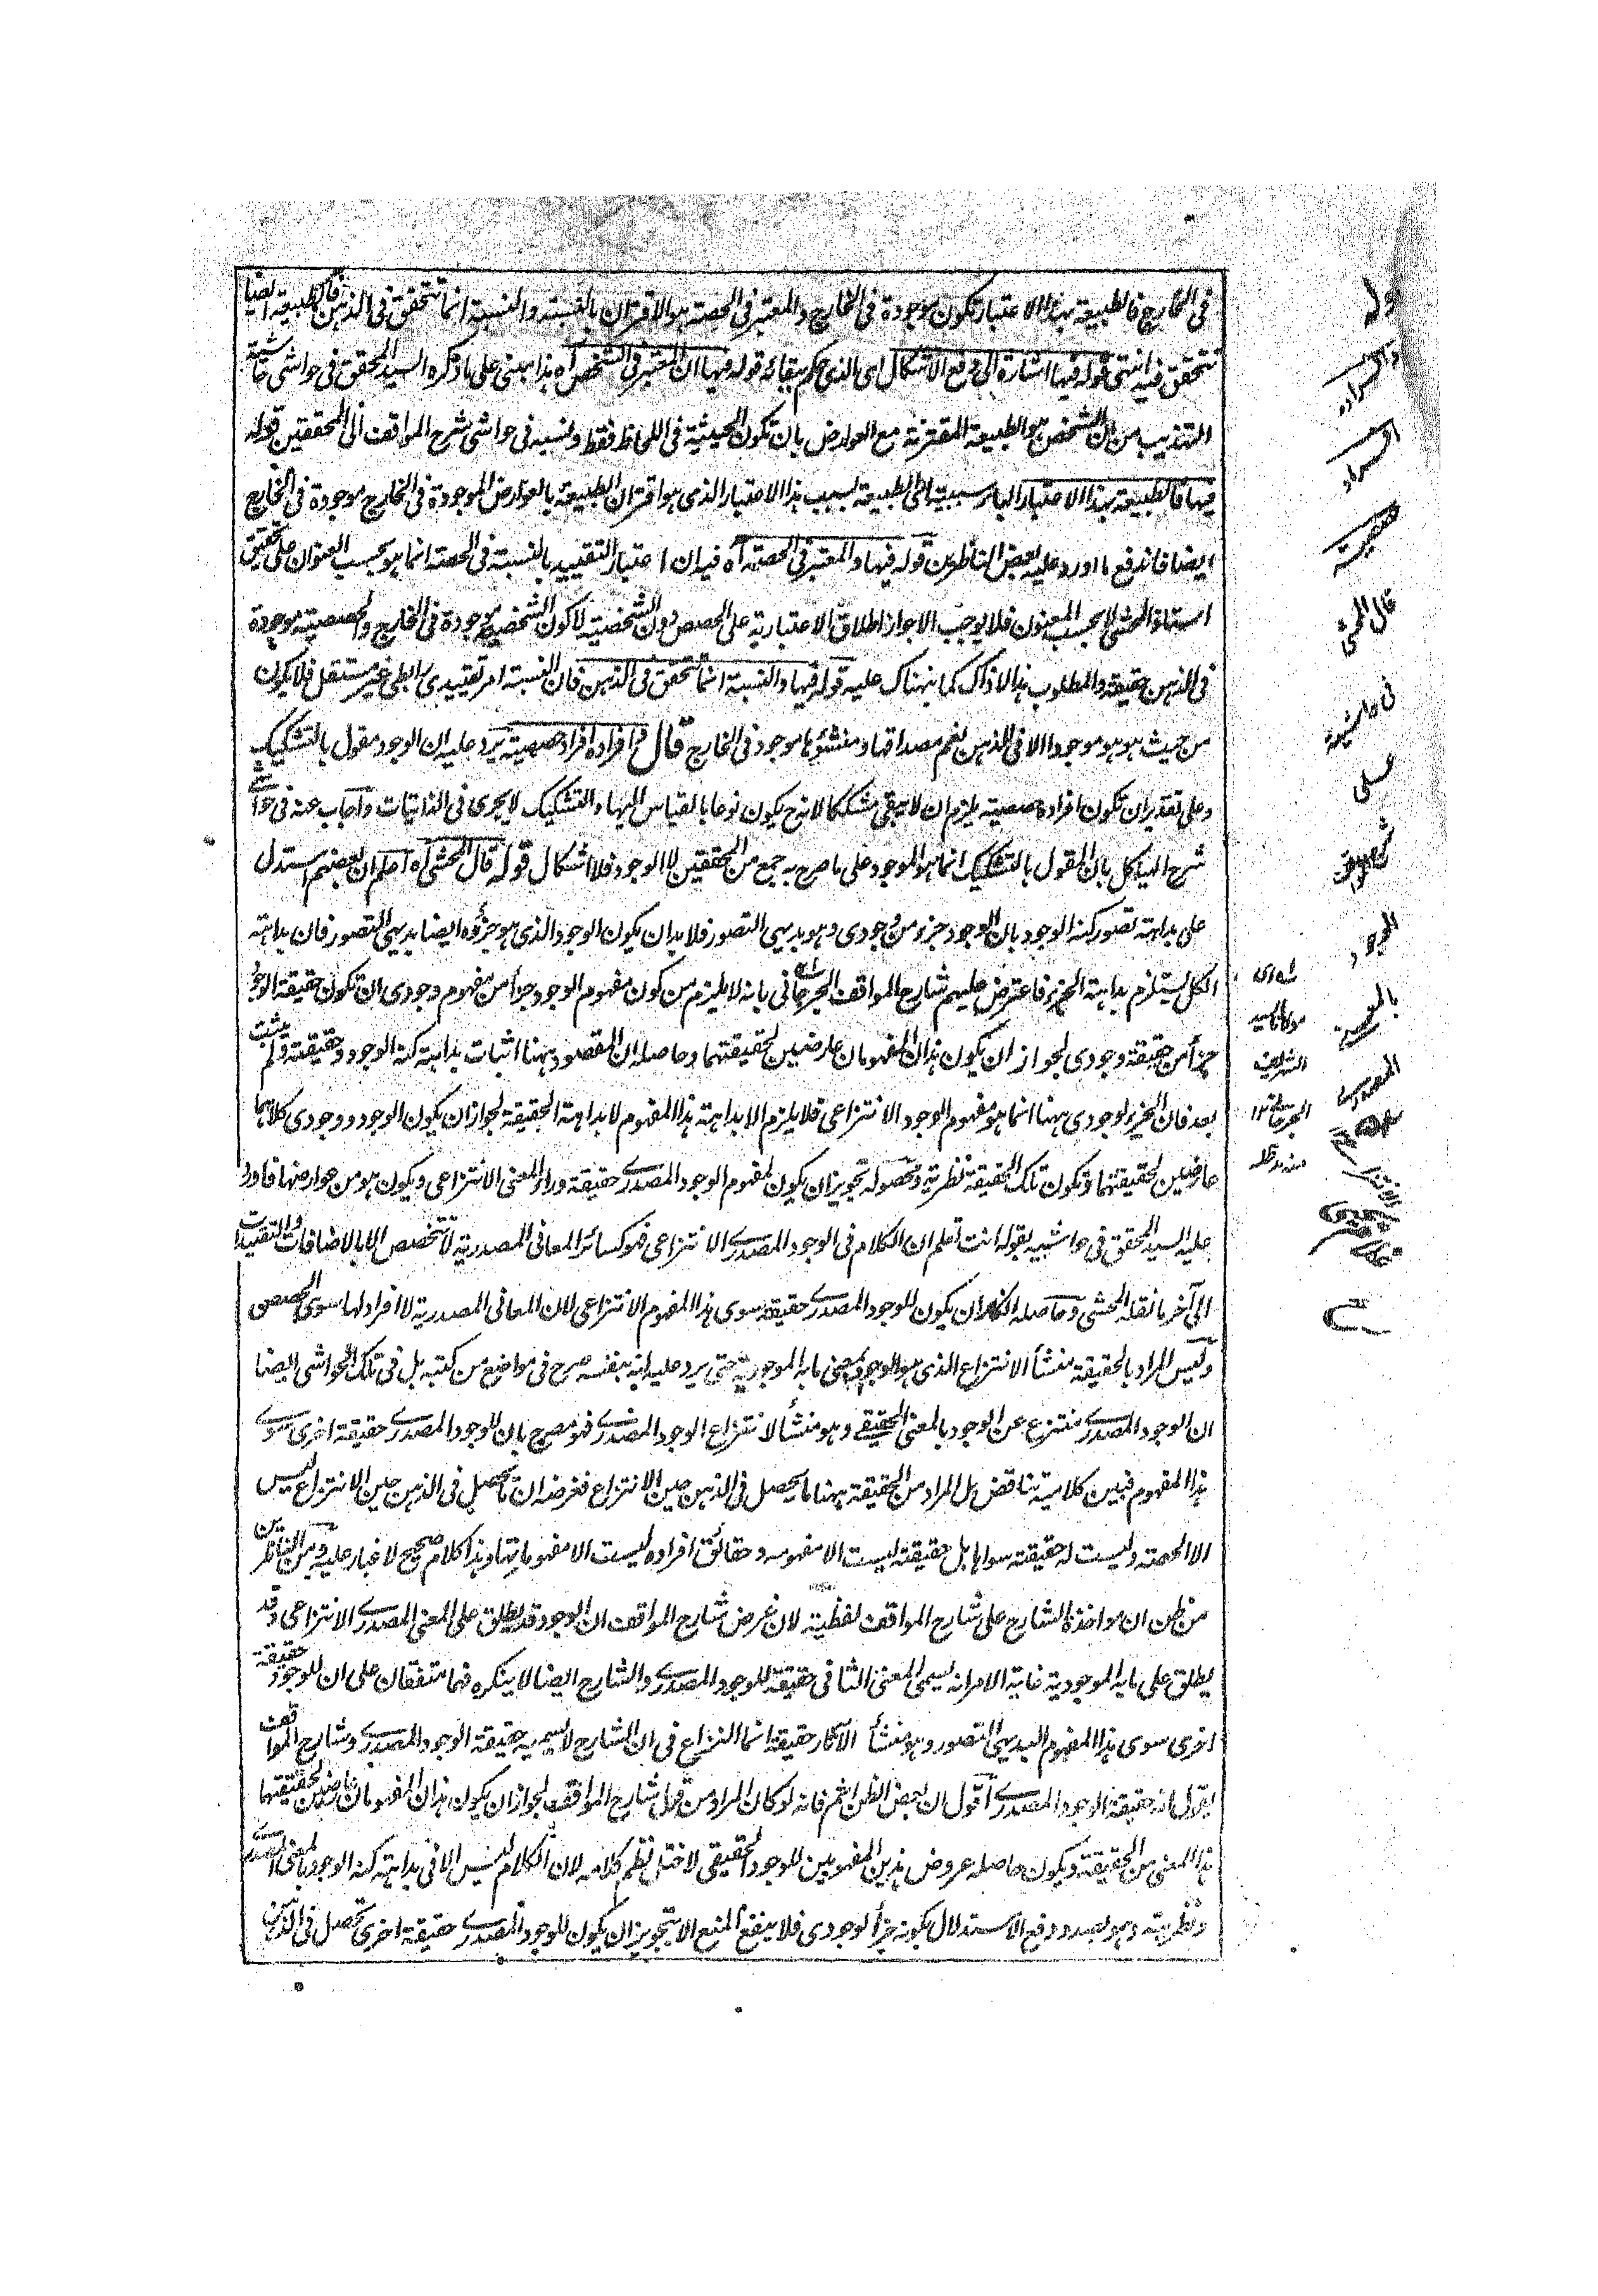 في الخارج فالطبيعة بهذا الاعتبار تكون موجودة في الخارج والمعتبر في الحصة هو الاقتران بالنسبة والنسبة انما تتحقق في الذهن فالطبيعة ايضا
تتحقق فيه انتهى قوله فيها اشارة الى دفع الاشكال اى الذى حكم ببقائه قوله فيها ان المعتبر في الشخص آه هذا مبنى على ما ذكره السيد المحقق في حواشى حاشية
التهذيب من ان الشخص هو الطبيعة المقترنة مع العوارض بان تكون الحيثية في اللحاظ فقط ونسبه في حواشى شرح المواقف الى المحققين قوله
فيها فالطبيعة بهذا الاعتبار الباء سببية اى الطبيعة بسبب هذا الاعتبار الذى هو اقتران الطبيعة بالعوارض الموجودة في الخارج موجودة في الخارج
ايضا فاندفع ما اورد عليه بعض الناظرين قوله فيها والمعتبر في الحصة آه فيه ان اعتبار التقييد بالنسبة في الحصة انما هو بحسب العنوان على تحقيق
استاذ المحشى لا بحسب المعنون فلا يوجب الا جواز اطلاق الاعتبارية على الحصص دون الشخصية لا كون الشخصية موجودة في الخارج والحصصية موجودة
في الذهن حقيقة والمطلوب هذا لا ذاك كما نبهناك عليه قوله فيها والنسبة انما تتحقق في الذهن فان النسبة امر تقييدى رابطى غير مستقل فلا يكون
من حيث هو هو موجودا الا في الذهن نعم مصداقها ومنشؤها موجود في الخارج قال فافراده افراد حصصية يرد عليه ان الوجود مقول بالتشكيك
وعلى تقدير ان تكون افراده حصصية يلزم ان لا يبقى مشككا لانه ح يكون نوعا بالقياس اليها والتشكيك لا يجرى في الذاتيات واجاب عنه في حواشى
شرح الهياكل بان المقول بالتشكيك انما هو الموجود على ما صرح به جمع من المحققين لا الوجود فلا اشكال قوله قال المحشى آه اعلم ان بعضهم استدل
على بداهة تصور كنه الوجود بان الوجود جزء من وجودى وهو بديهى التصور فلا بد ان يكون الوجود الذى هو جزؤه ايضا بديهى التصور فان بداهة
الكل يستلزم بداهة الجزء فاعترض عليهم شارح المواقف الجرجانى بانه لا يلزم من كون مفهوم الوجود جزأ من مفهوم وجودى ان تكون حقيقة الوجود
جزأ من حقيقة وجودى لجواز ان يكون هذان المفهومان عارضين لحقيقتهما وحاصله ان المقصود ههنا اثبات بداهة كنه الوجود وحقيقته ولم يثبت
بعد فان الجزء لوجودى ههنا انما هو مفهوم الوجود الانتزاعى فلا يلزم الا بداهة هذا المفهوم لا بداهة الحقيقة لجواز ان يكون الوجود ووجودى كلاهما
عارضين لحقيقتهما وتكون تلك الحقيقة نظرية ومحصوله تجويز ان يكون لمفهوم الوجود المصدرى حقيقة وراء المعنى الانتزاعى ويكون هو من عوارضها فاورد
عليه السيد المحقق في حواشيه بقوله انت تعلم ان الكلام في الوجود المصدرى الانتزاعى فهو كسائر المعانى المصدرية لا تتخصص الا بالاضافات والتقييدات
الى آخر ما نقله المحشى وحاصله انكار ان يكون للوجود المصدرى حقيقة سوى هذا المفهوم الانتزاعى لان المعانى المصدرية لا افراد لها سوى الحصص
وليس المراد بالحقيقة منشأ الانتزاع الذى هو الوجود بمعنى ما به الموجودية حتى يرد عليه انه بنفسه صرح في مواضع من كتبه بل في تلك الحواشى ايضا
ان الوجود المصدرى منتزع عن الوجود بالمعنى الحقيقى وهو منشأ لانتزاع الوجود المصدرى فهو مصرح بان للوجود المصدرى حقيقة اخرى سوى
هذا المفهوم فبين كلاميه تناقض بل المراد من الحقيقة ههنا ما يحصل في الذهن حين الانتزاع فغرضه ان ما يحصل في الذهن حين الانتزاع ليس
الا الحصة وليست له حقيقة سواها بل حقيقته ليست الا مفهومه وحقائق افراده ليست الا مفهوماتها وهذا كلام صحيح لا غبار عليه ومن الناظرين
من ظن ان مواخذة الشارح على شارح المواقف لفظية لان غرض شارح المواقف ان الوجود قد يطلق على المعنى المصدرى الانتزاعى وقد
يطلق على ما به الموجودية غاية الامر انه يسمى المعنى الثانى حقيقة للوجود المصدرى والشارح ايضا لا ينكره فهما متفقان على ان للوجود حقيقة
اخرى سوى هذا المفهوم البديهى التصور وهو منشأ الآثار حقيقة انما النزاع في ان الشارح لا يسميه حقيقة الوجود المصدرى وشارح المواقف
يقول انه حقيقة الوجود المصدرى اقول ان بعض الظن اثم فانه لو كان المراد من قول شارح المواقف لجواز ان يكون هذان المفهومان عارضين لحقيقتهما
هذا المعنى من الحقيقة ويكون حاصله عروض هذين المفهومين للوجود الحقيقى لاختل نظم كلامه لان الكلام ليس الا في بداهة كنه الوجود بالمعنى المصدرى
ونظريته وهو بصدد دفع الاستدلال بكونه جزأ لوجودى فلا ينفع المنع الا بتجويز ان يكون للوجود المصدرى حقيقة اخرى تحصل في الذهن
قوله
فافراده
افراد
حصصية
قال المحشى
في حاشيته
على
الوجود
بالمعنى
المصدرى
مولانا السيد
الشريف
الجرجانى ١٢
منه مد ظله